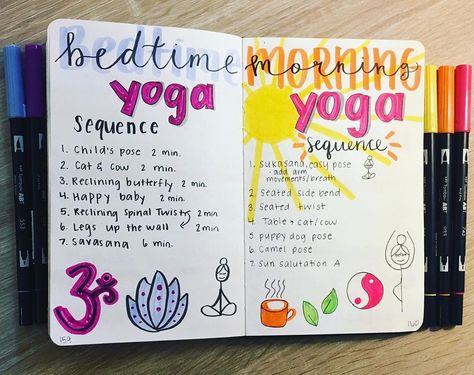 Bedtime
bedtime
yoga
sequence
1. Child's pose 2 min.
2. Cat & Cow 2 min.
3. Reclining butterfly 2 min.
4. Happy baby 2 min.
5. Reclining Spinal Twist 2 min
6. Legs up the wall 2 min.
7. Savasana 6 min.
ॐ
159
MORNING
morning
yoga
sequence
1. Sukasana, easy pose
- add arm
movements/breath
2. Seated side bend
3. Seated twist
4. Table → cat/cow
5. puppy dog pose
6. Camel pose
7. Sun salutation A
160